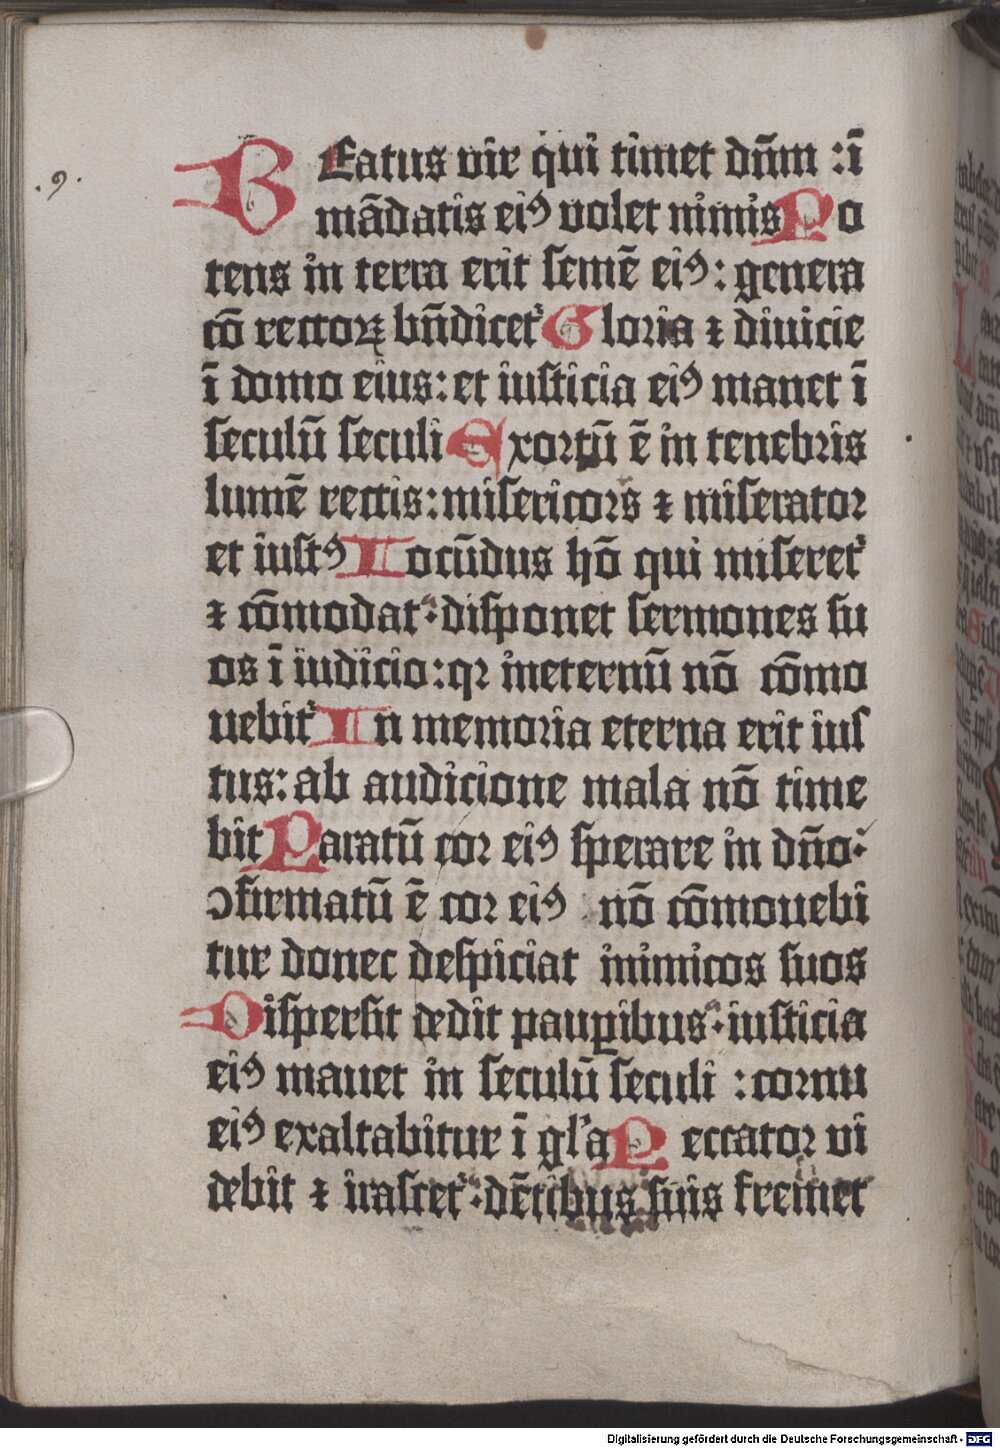 .9.
BEatus vir qui timet dn̄m : ī
mādatis eiꝰ volet nimis Po
tens in terra erit semē eiꝰ : genera
cō rectoꝝ bn̄dicet᷑ Gloria ⁊ diuicie
ī domo eius : et iusticia eiꝰ manet ī
seculū seculi Exortū ē in tenebris
lumē rectis : misericors ⁊ miserator
et iustꝰ Iocūdus hō qui miseret᷑
⁊ cōmodat : disponet sermones su
os ī iudicio : qꝛ ineternū nō cōmo
uebit᷑ In memoria eterna erit ius
tus : ab audicione mala nō time
bit Paratū cor eiꝰ sperare in dn̄o :
ↄfirmatū ē cor eiꝰ nō cōmouebi
tur donec despiciat inimicos suos
Dispersit dedit paup̱ibus : iusticia
eiꝰ manet in seculū seculi : cornu
eiꝰ exaltabitur ī gl'a Peccator vi
debit ⁊ irascet᷑ : dētibus suis fremet
Digitalisierung gefördert durch die Deutsche Forschungsgemeinschaft - DFG